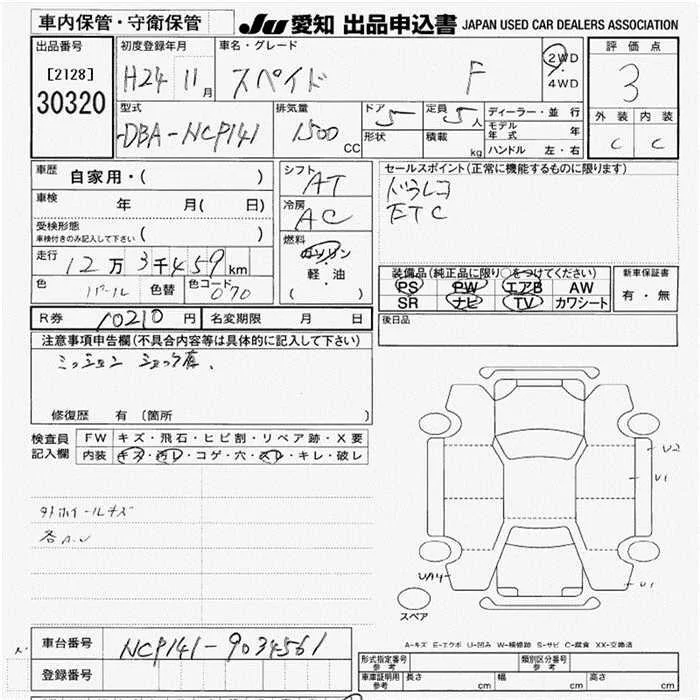 車内保管・守衛保管
JU 愛知 出品申込書 JAPAN USED CAR DEALERS ASSOCIATION
出品番号
[2128]
30320
初度登録年月
H24 11月
車名・グレード
スペイド F
2WD
・
4WD
評価点
3
外装 内装
C C
型式
-DBA-NCP141
排気量
1500 CC
ドア 5
形状
定員 5人
積載 kg
ディーラー・並行
モデル年式 年
ハンドル 左・右
車歴 自家用・( )
車検 年 月( 日)
受検形態
車検付きのみ記入して下さい ( )
走行 12万3千459km
色 パール 色替 色コード 070
シフト AT
冷房 AC
燃料 ガソリン
軽・油
( )
セールスポイント(正常に機能するものに限ります)
ドラレコ
ETC
装備品(純正品に限り○をつけてください)
PS PW エアB AW
SR ナビ TV カワシート
新車保証書
有・無
後日品
R券 10210円 名変期限 月 日
注意事項申告欄(不具合内容等は具体的に記入して下さい)
ミッション ショック有.
修復歴 有 (箇所 )
検査員記入欄
FW キズ・飛石・ヒビ割・リペア跡・X要
内装 キズ・汚レ・コゲ・穴・スレ・キレ・破レ
外ホイールキズ
各A.U
U2
U1
UA4
U1
スペア
A-キズ E-エクボ U-凹み W-補修跡 S-サビ C-腐食 XX-交換済
車台番号 NCP141-9034561
登録番号
形式指定番号 参考
類別区分番号 参考
車庫証明用 参考 長さ cm 幅 cm 高さ cm